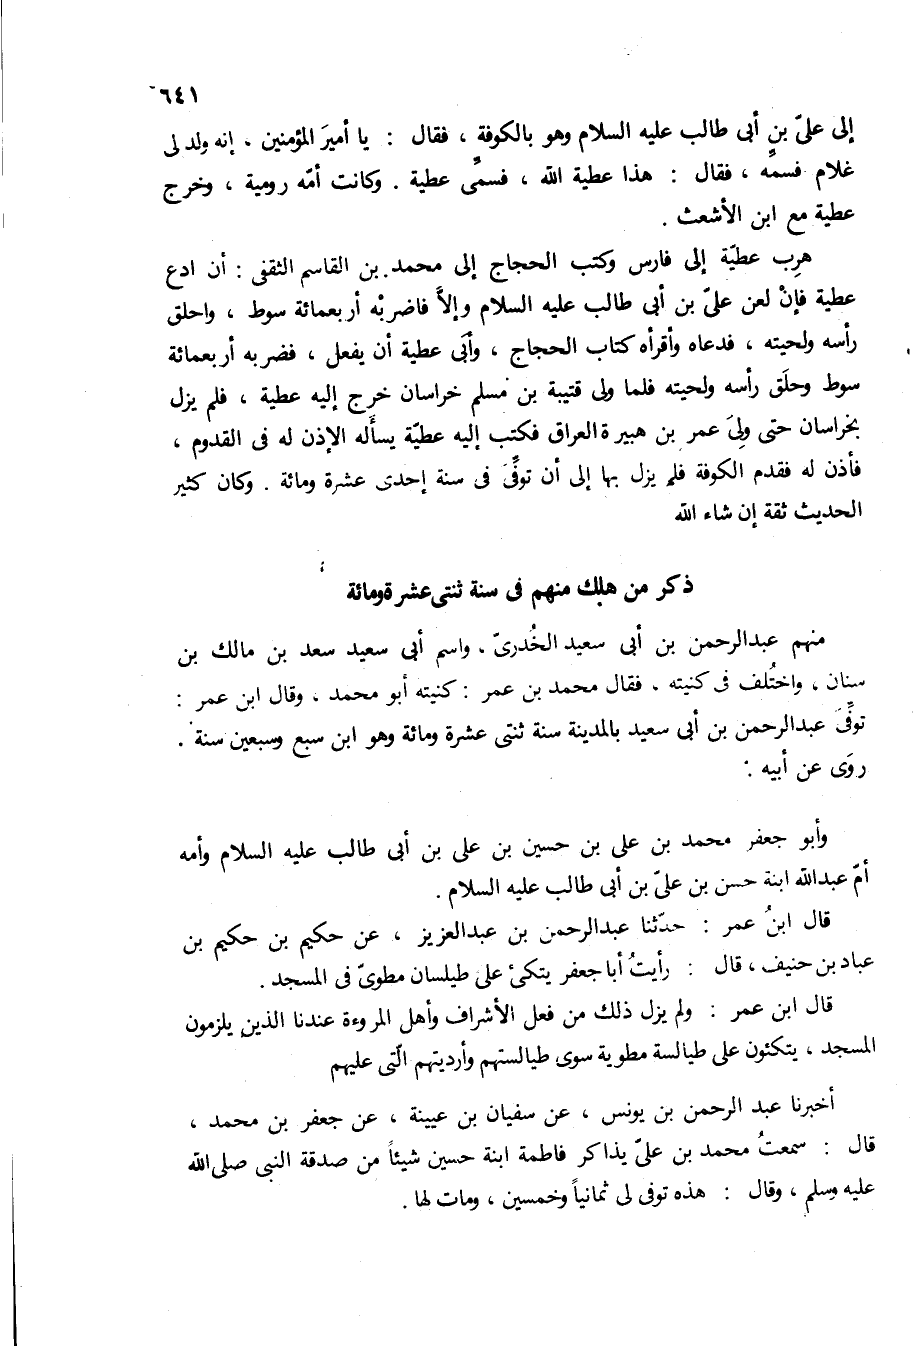 ٦٤١
إلى علىّ بن أبى طالب عليه السلام وهو بالكوفة ، فقال : يا أميرَ المؤمنين . إنه ولد لى
غلام فسمِّه ، فقال : هذا عطية الله ، فسمِّى عطية . وكانت أمّه رومية ، وخرج
عطية مع ابن الأشعث .
هرِب عطيّة إلى فارس وكتب الحجاج إلى محمد بن القاسم الثقفى : أن ادع
عطية فإنْ لعن علىّ بن أبى طالب عليه السلام وإلاَّ فاضربْه أربعمائة سوط ، واحلق
رأسه ولحيته ، فدعاه وأقرأه كتاب الحجاج ، وأَبَى عطية أن يفعل ، فضربه أربعمائة
سوط وحلَق رأسه ولحيته فلما ولى قتيبة بن مسلم خراسان خرج إليه عطية ، فلم يزل
بخراسان حتى ولِىَ عمر بن هبيرة العراق فكتب إليه عطيّة يسأَله الإذن له فى القدوم ،
فأذن له فقدم الكوفة فلم يزل بها إلى أن توفِّىَ فى سنة إحدى عشرة ومائة . وكان كثير
الحديث ثقة إن شاء الله
ذكر من هلك منهم فى سنة ثنتى عشرة ومائة
منهم عبدالرحمن بن أبى سعيد الخُدرىّ . واسم أبى سعيد سعد بن مالك بن
سنان ، واختُلف فى كنيته . فقال محمد بن عمر : كنيته أبو محمد . وقال ابن عمر :
توفِّىَ عبدالرحمن بن أبى سعيد بالمدينة سنة ثنتى عشرة ومائة وهو ابن سبع وسبعين سنة .
روَى عن أبيه .
وأبو جعفر محمد بن على بن حسين بن على بن أبى طالب عليه السلام وأمه
أمّ عبدالله ابنة حسن بن علىّ بن أبى طالب عليه السلام .
قال ابنُ عمر : حدّثنا عبدالرحمن بن عبدالعزيز ، عن حكيم بن حكيم بن
عباد بن حنيف ، قال : رأيتُ أبا جعفر يتكئ على طيلسان مطوىّ فى المسجد .
قال ابن عمر : ولم يزل ذلك من فعل الأشراف وأهل المروءة عندنا الذين يلزمون
المسجد ، يتكئون على طيالسة مطوية سوى طيالستهم وأرديتهم الّتى عليهم
أخبرنا عبد الرحمن بن يونس ، عن سفيان بن عيينة ، عن جعفر بن محمد ،
قال : سمعتُ محمد بن علىّ يذاكر فاطمة ابنة حسين شيئاً من صدقة النبى صلى الله
عليه وسلم ، وقال : هذه توفى لى ثمانياً وخمسين ، ومات لها .